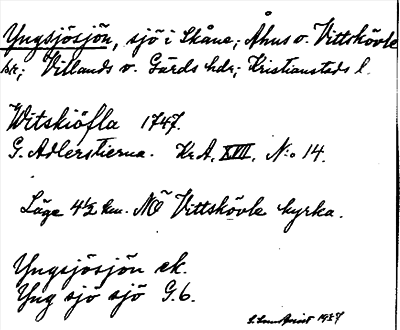 Yngsjösjön, sjö i Skåne; Åhus o. Vittskövle
sk; Villands o. Gärds hdr; Kristianstads l.
Witskiöfla 1747.
G. Adlerstierna. Kr.A. XVII, N:o 14.
Läge 4½ km. NÖ Vittskövle kyrka.
Yngsjösjön ek.
Yng sjö sjö G.6.
S. Lundqvist 1927